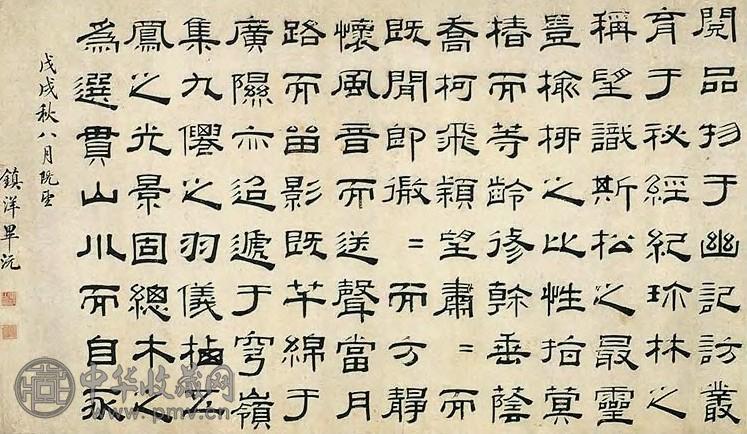 閱品物于幽記訪叢
育于秘經紀珍林之
稱望識斯松之最靈
豈榆柳之比性指冥
椿而等齡修幹垂蔭
喬柯飛穎望肅=而
既閒即微=而方靜
懷風音而送聲當月
路而留影既芊綿于
廣隰亦迢遞于穹嶺
集九僊之羽儀棲五
鳳之光景固總木之
為選貫山川而自永
戊戌秋八月既望
鎮洋畢沅
中华收藏网
www.pmv.cn